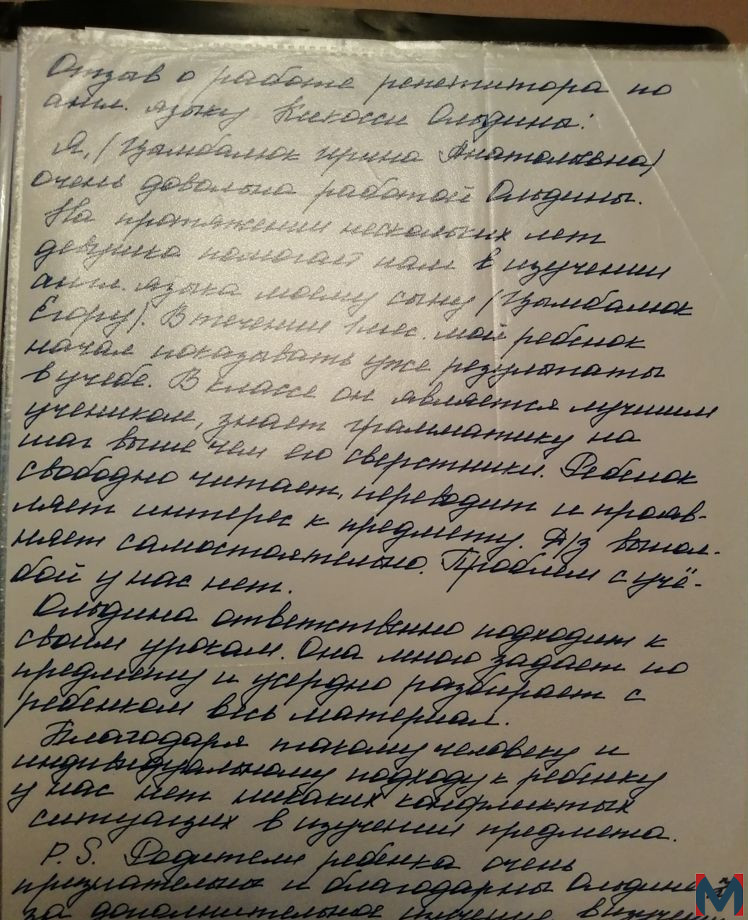 Отзыв о работе репетитора по
англ. языку Кикосси Ольдины:
Я, (Цымбалюк Ирина Анатольевна)
очень довольна работой Ольдины.
На протяжении нескольких лет
девушка помогает нам в изучении
англ. языка моему сыну (Цымбалюк
Егору). В течении 1 мес. мой ребенок
начал показывать уже результаты
в учебе. В классе он является лучшим
учеником, знает грамматику на
шаг выше чем его сверстники. Ребенок
свободно читает, переводит и прояв-
ляет интерес к предмету. Д/з выпол-
няет самостоятельно. Проблем с учё-
бой у нас нет.
Ольдина ответственно подходит к
своим урокам. Она много задает по
предмету и усердно разбирает с
ребенком весь материал.
Благодаря такому человеку и
индивидуальному подходу к ребенку
у нас нет никаких конфликтых
ситуациях в изучении предмета.
P.S. Родители ребенка очень
признательны и благодарны Ольдине
за дополнительное изучение
M